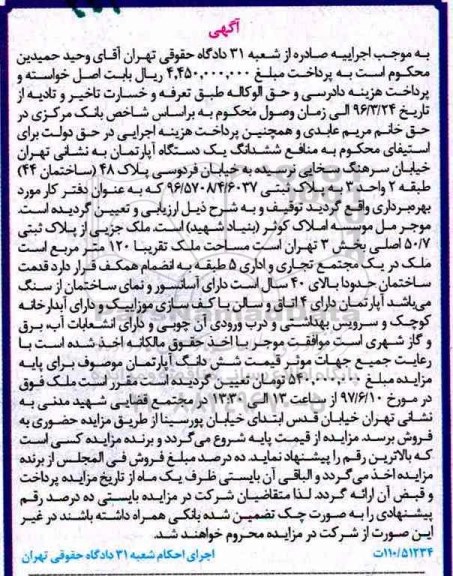 آگهی
به موجب اجراییه صادره از شعبه ۳۱ دادگاه حقوقی تهران آقای وحید حمیدین
محکوم است به پرداخت مبلغ ۴,۴۵۰,۰۰۰,۰۰۰ ریال بابت اصل خواسته و
پرداخت هزینه دادرسی و حق الوکاله طبق تعرفه و خسارت تاخیر و تادیه از
تاریخ ۹۶/۳/۲۴ الی زمان وصول محکوم به براساس شاخص بانک مرکزی در
حق خانم مریم عابدی و همچنین پرداخت هزینه اجرایی در حق دولت برای
استیفای محکوم به منافع ششدانگ یک دستگاه آپارتمان به نشانی تهران
خیابان سرهنگ سخایی نرسیده به خیابان فردوسی پلاک ۴۸ (ساختمان ۴۴)
طبقه ۲ واحد ۳ به پلاک ثبتی ۹۶/۵۷۰۸/۴/۶۰۳۷ که به عنوان دفتر کار مورد
بهره‌برداری واقع گردید توقیف و به شرح ذیل ارزیابی و تعیین گردیده است.
موجر مل موسسه املاک کوثر (بنیاد شهید) است. ملک جزیی از پلاک ثبتی
۵۰/۷ اصلی بخش ۳ تهران است مساحت ملک تقریبا ۱۲۰ متر مربع است
ملک در یک مجتمع تجاری و اداری ۵ طبقه به انضمام همکف قرار دارد قدمت
ساختمان حدودا بالای ۴۰ سال است دارای آسانسور و نمای ساختمان از سنگ
می‌باشد آپارتمان دارای ۴ اتاق و سالن با کف سازی موزاییک و دارای آبدارخانه
کوچک و سرویس بهداشتی و درب ورودی آن چوبی و دارای انشعابات آب، برق
و گاز شهری است موافقت موجر با اخذ حقوق مالکانه اخذ شده است با
رعایت جمیع جهات موثر قیمت شش دانگ آپارتمان موصوف برای پایه
مزایده مبلغ ۵۴۰,۰۰۰,۰۰۰ تومان تعیین گردیده است مقرر است ملک فوق
در مورخ ۹۷/۶/۱۰ از ساعت ۱۳ الی ۱۳:۳۰ در مجتمع قضایی شهید مدنی به
نشانی تهران خیابان قدس ابتدای خیابان پورسینا از طریق مزایده حضوری به
فروش برسد. مزایده از قیمت پایه شروع می‌گردد و برنده مزایده کسی است
که بالاترین رقم را پیشنهاد نماید. ده درصد مبلغ فروش فی المجلس از برنده
مزایده اخذ می‌گردد و الباقی آن بایستی ظرف یک ماه از تاریخ مزایده پرداخت
و قبض آن ارائه گردد. لذا متقاضیان شرکت در مزایده بایستی ده درصد رقم
پیشنهادی را به صورت چک تضمین شده بانکی همراه داشته باشند در غیر
این صورت از شرکت در مزایده محروم خواهند شد.
۱۱۰/۵۱۲۳۴ت اجرای احکام شعبه ۳۱ دادگاه حقوقی تهران